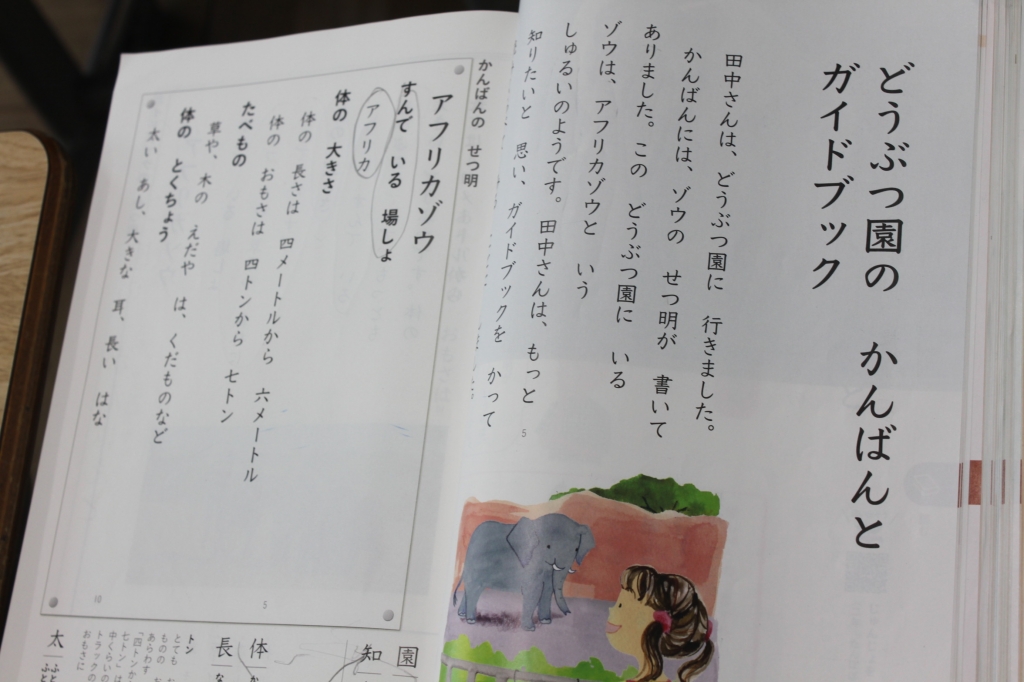 どうぶつ園の かんばんと
ガイドブック
田中さんは、どうぶつ園に 行きました。
かんばんには、ゾウの せつ明が 書いて
ありました。この どうぶつ園に いる
ゾウは、アフリカゾウと いう
しゅるいのようです。田中さんは、もっと
知りたいと 思い、ガイドブックを かって
5
かんばんの せつ明
アフリカゾウ
すんで いる 場しょ
アフリカ
体の 大きさ
体の 長さは 四メートルから 六メートル
体の おもさは 四トンから 七トン
たべもの
草や、木の えだや は、くだものなど
体の とくちょう
太い あし、大きな 耳、長い はな
5
10
園
知
体
長
トン
太